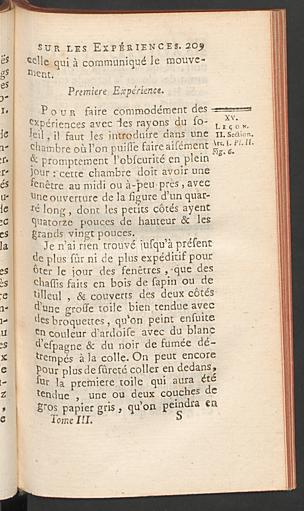 SUR LES EXPÉRIENCES. 209
celle qui à communiqué le mouve-
ment.
Premiere Expérience.
POUR faire commodément des
expériences avec les rayons du so-
leil, il faut les introduire dans une
chambre où l'on puisse faire aisément
& promptement l'obscurité en plein
jour : cette chambre doit avoir une
fenêtre au midi ou à-peu près, avec
une ouverture de la figure d'un quar-
ré long, dont les petits côtés ayent
quatorze pouces de hauteur & les
grands vingt pouces.
Je n'ai rien trouvé jusqu'à présent
de plus sûr ni de plus expéditif pour
ôter le jour des fenêtres, que des
chassis faits en bois de sapin ou de
tilleul, & couverts des deux côtés
d'une grosse toile bien tendue avec
des broquettes, qu'on peint ensuite
en couleur d'ardoise avec du blanc
d'espagne & du noir de fumée dé-
trempés à la colle. On peut encore
pour plus de sûreté coller en dedans,
sur la premiere toile qui aura été
tendue, une ou deux couches de
gros papier gris, qu'on peindra en
Tome III. S
XV.
LEÇON.
II. Section.
Art. I. Pl. II.
Fig. 6.